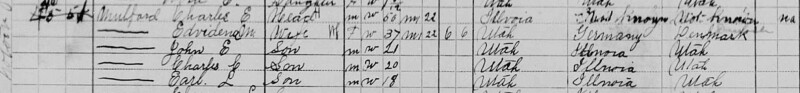 Daughter
50 54 Mulford Charles E. Head m w 50 m 22 Illinois Not Known Not Known na
—— M Wife M F w 37 m 22 6 6 Utah Germany Denmark
—— John E Son m w 21 Utah Illinois Utah
—— Charles C Son m w 20 Utah Illinois Utah
—— Earl L Son m w 18 Utah Illinois Utah